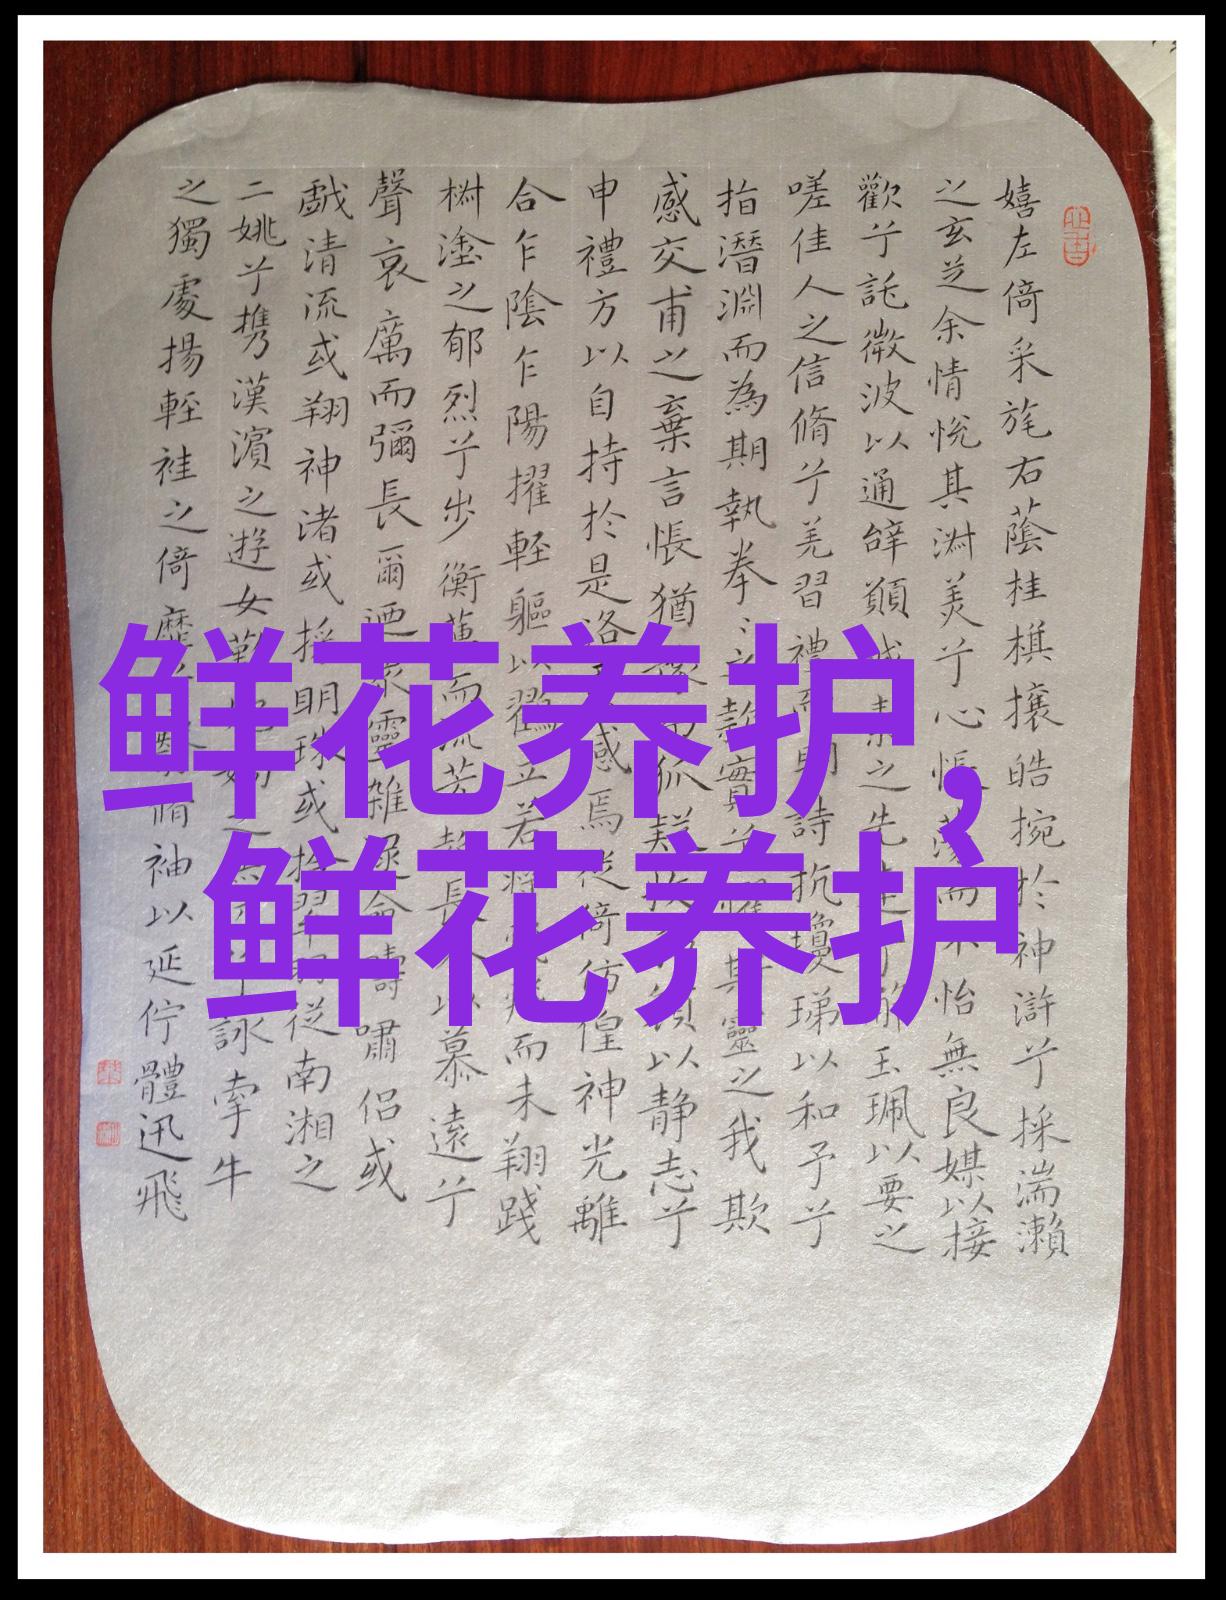 鲜花养护，
鲜花养护
嬉左倚采旄右蔭桂棋攘皓捥於神滸兮採湍瀨
之玄芝余情悅其淑美兮心悵蕩而不怡無良媒以接
歡兮託微波以通辝願誠素之先達兮解玉珮以要之
嗟佳人之信脩兮羌習禮而明詩抗瓊珶以和予兮
指潛淵而為期執拳〻之款實兮懼斯靈之我欺
感交甫之棄言悵猶豫而狐疑收和顏以静志兮
申禮方以自持於是洛靈感焉徙倚彷徨神光離
合乍陰乍陽擢輕軀以鶴立若將飛而未翔踐
椒塗之郁烈兮步衡薄而流芳超長吟以慕遠兮
聲哀厲而彌長爾迺眾靈雜遝命疇嘯侶或
戲清流或翔神渚或採明珠或拾翠羽從南湘之
二姚兮攜漢濱之遊女歎之無匹兮詠牽牛
之獨處揚輕袿之倚靡兮翳脩袖以延佇體迅飛